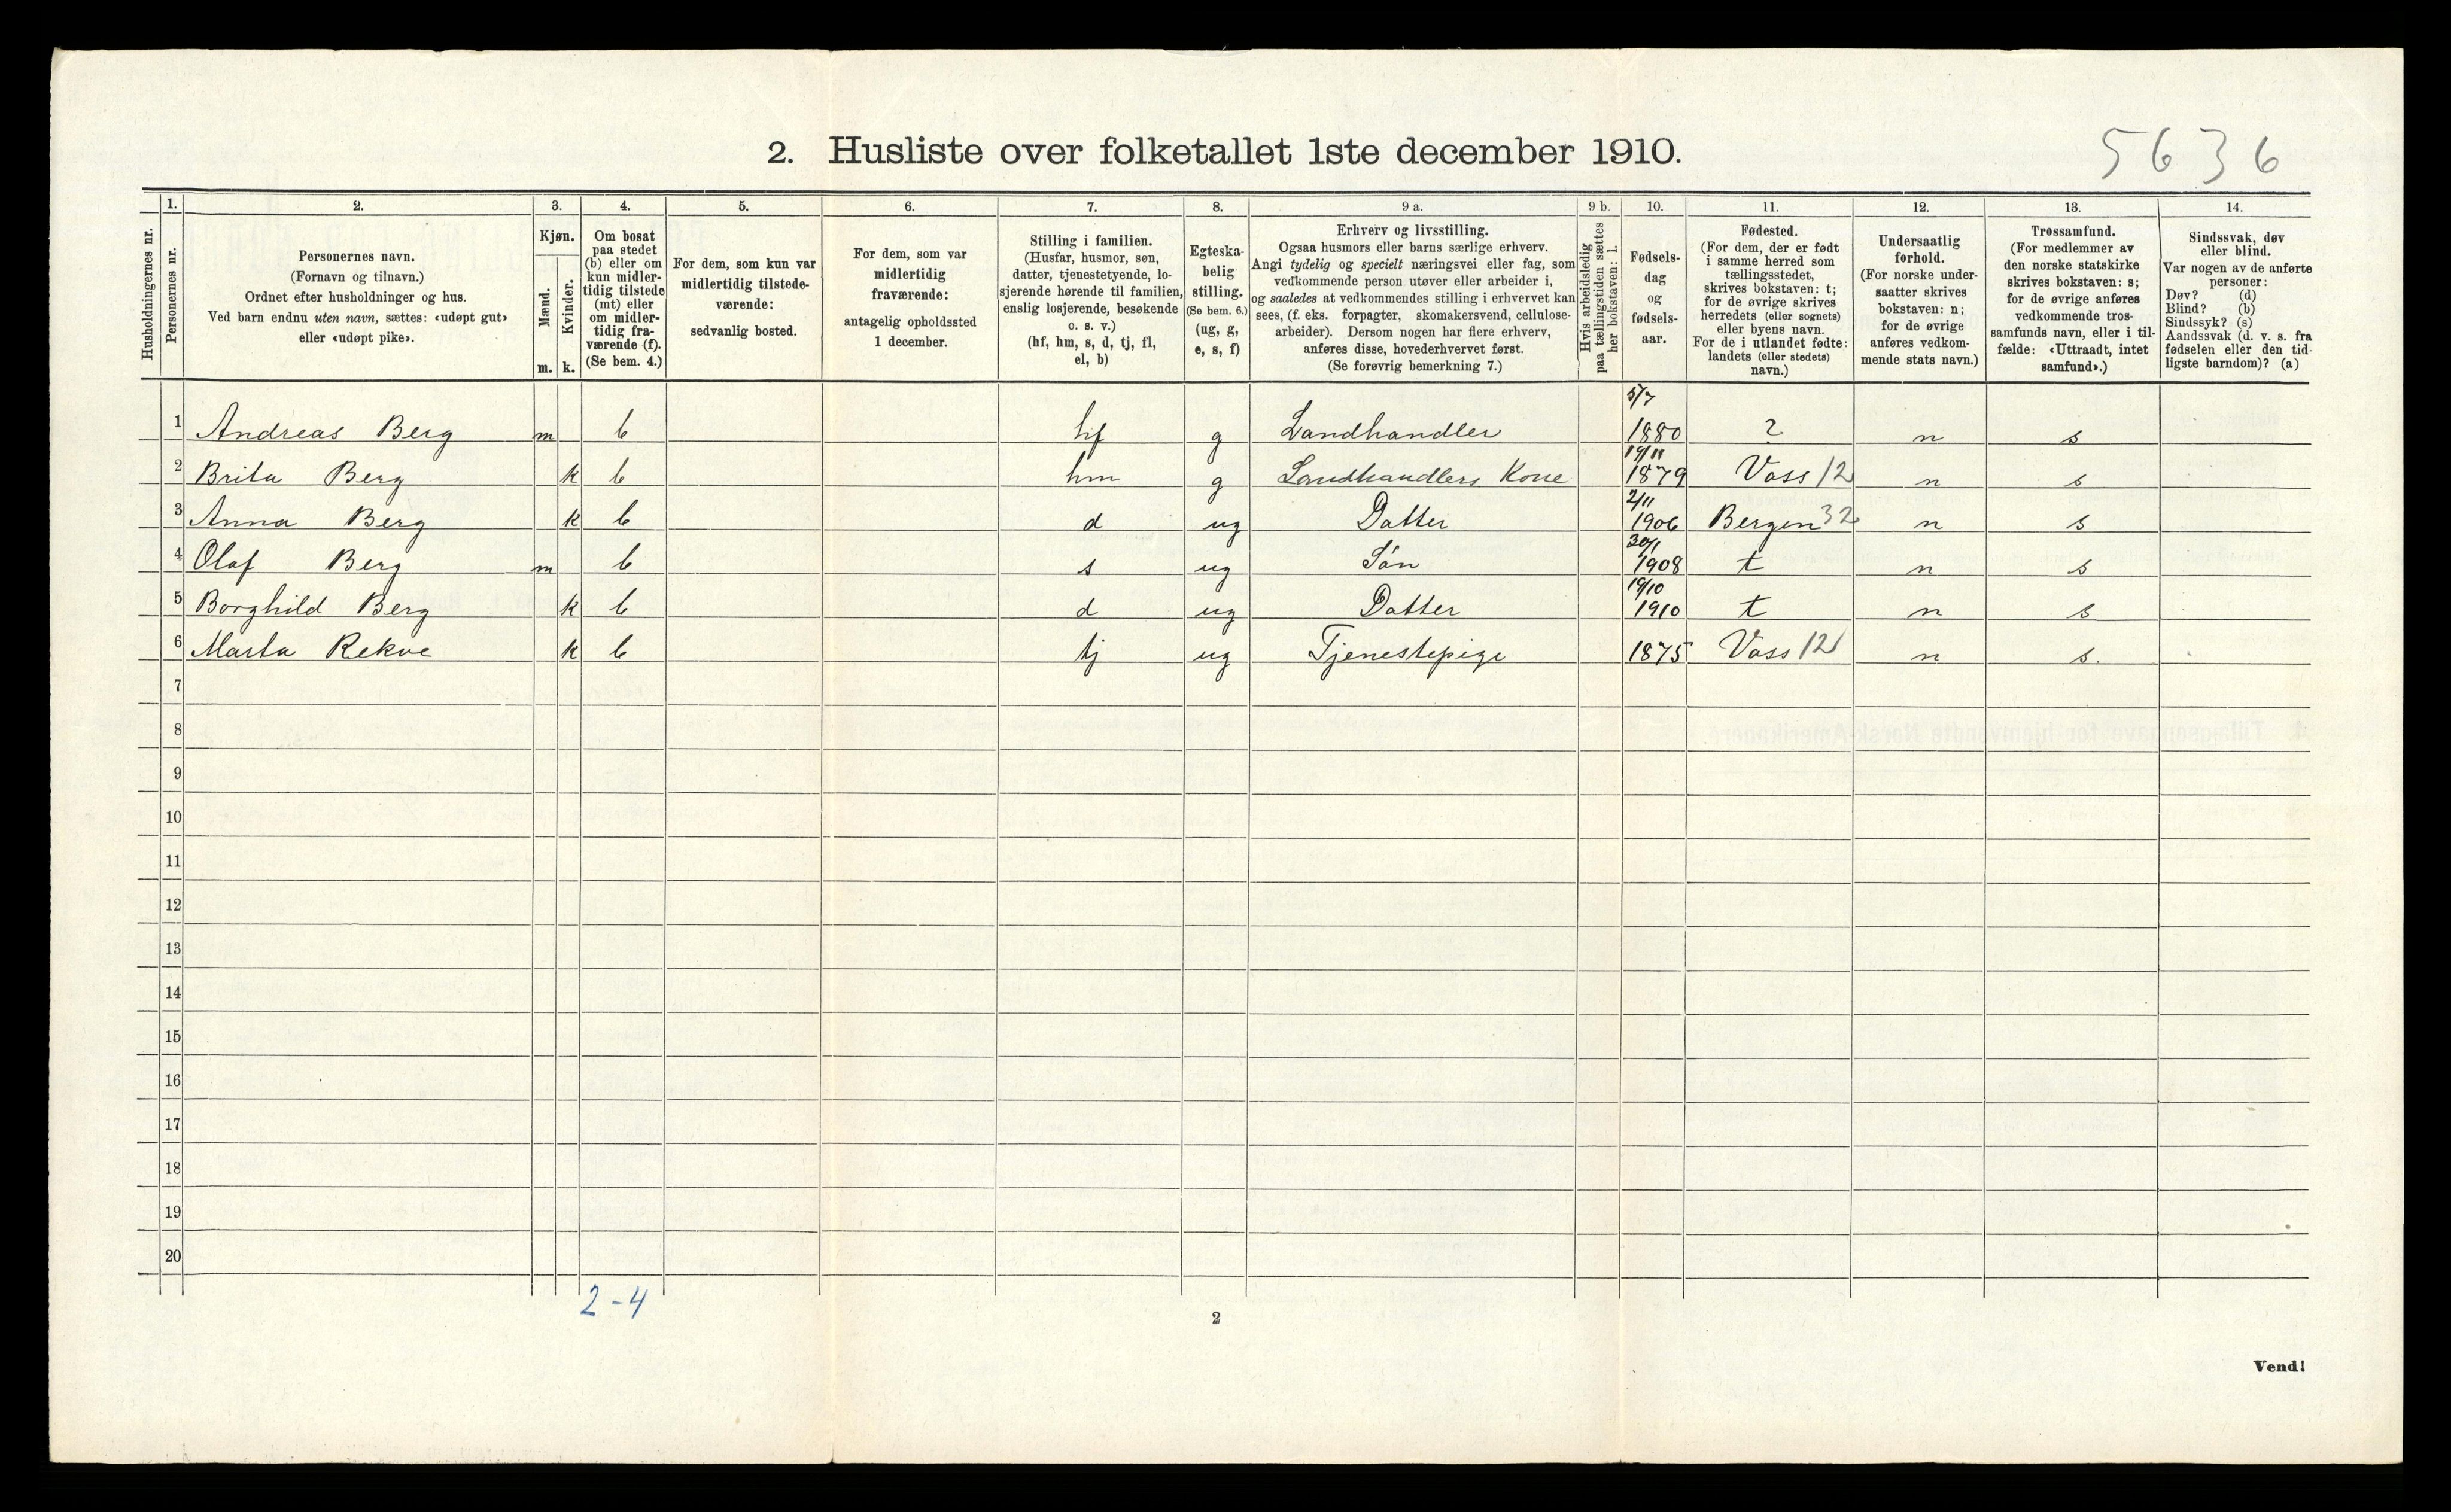 2. Husliste over folketallet 1ste december 1910.
5636
Husholdningernes nr.
1.
Personernes nr.
2.
Personernes navn.
(Fornavn og tilnavn.)
Ordnet efter husholdninger og hus.
Ved barn endnu uten navn, sættes: «udøpt gut»
eller «udøpt pike».
3.
Kjøn.
Mænd.
Kvinder.
m.
k.
4.
Om bosat
paa stedet
(b) eller om
kun midler-
tidig tilstede
(mt) eller
om midler-
tidig fra-
værende (f).
(Se bem. 4.)
5.
For dem, som kun var
midlertidig tilstede-
værende:
sedvanlig bosted.
6.
For dem, som var
midlertidig
fraværende:
antagelig opholdssted
1 december.
7.
Stilling i familien.
(Husfar, husmor, søn,
datter, tjenestetyende, lo-
sjerende hørende til familien,
enslig losjerende, besøkende
o. s. v.)
(hf, hm, s, d, tj, fl,
el, b)
8.
Egteska-
belig
stilling.
(Se bem. 6.)
(ug, g,
e, s, f)
9 a.
Erhverv og livsstilling.
Ogsaa husmors eller barns særlige erhverv.
Angi tydelig og specielt næringsvei eller fag, som
vedkommende person utøver eller arbeider i,
og saaledes at vedkommendes stilling i erhvervet kan
sees, (f. eks. forpagter, skomakersvend, cellulose-
arbeider). Dersom nogen har flere erhverv,
anføres disse, hovederhvervet først.
(Se forøvrig bemerkning 7.)
9 b.
Hvis arbeidsledig
paa tællingstiden sættes
her bokstaven: l.
10.
Fødsels-
dag
og
fødsels-
aar.
11.
Fødested.
(For dem, der er født
i samme herred som
tællingsstedet,
skrives bokstaven: t;
for de øvrige skrives
herredets (eller sognets)
eller byens navn.
For de i utlandet fødte:
landets (eller stedets)
navn.)
12.
Undersaatlig
forhold.
(For norske under-
saatter skrives
bokstaven: n;
for de øvrige
anføres vedkom-
mende stats navn.)
13.
Trossamfund.
(For medlemmer av
den norske statskirke
skrives bokstaven: s;
for de øvrige anføres
vedkommende tros-
samfunds navn, eller i til-
fælde: «Uttraadt, intet
samfund».)
14.
Sindssvak, døv
eller blind.
Var nogen av de anførte
personer:
Døv? (d)
Blind? (b)
Sindssyk? (s)
Aandssvak (d. v. s. fra
fødselen eller den tid-
ligste barndom)? (a)
1 Andreas Berg m b hf g Landhandler 5/7 1880 ? n s
2 Brita Berg k b hm g Landhandlers Kone 19/11 1879 Voss 12 n s
3 Anna Berg k b d ug Datter 2/11 1906 Bergen 32 n s
4 Olaf Berg m b s ug Søn 30/1 1908 t n s
5 Borghild Berg k b d ug Datter 19/10 1910 t n s
6 Marta Rekve k b tj ug Tjenestepige 1875 Voss 12 n s.
7
8
9
10
11
12
13
14
15
16
17
18
19
20
2-4
2
Vend!